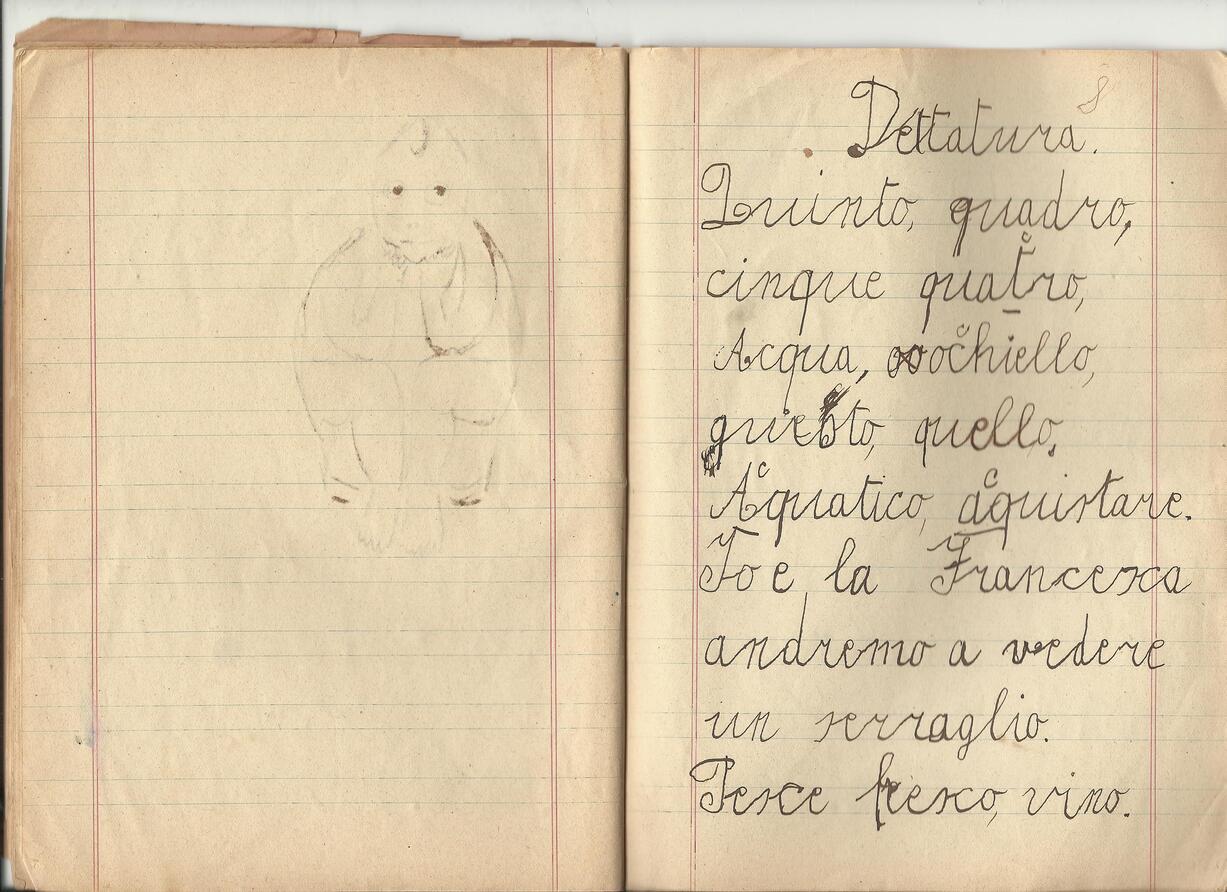 8
Dettatura.
Quinto, quadro,
cinque quattro,
Acqua, occhiello,
questo, quello,
Acquatico, acquistare.
Io e la Francesca
andremo a vedere
un serraglio.
Pesce fresco, vino.